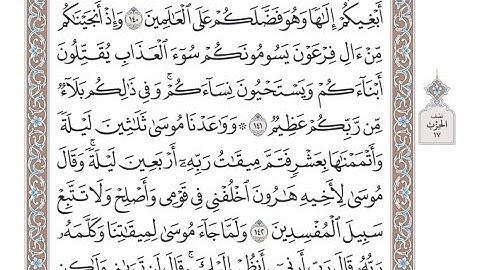 أَبْغِيكُمْ إِلَٰهًا وَهُوَ فَضَّلَكُمْ عَلَى ٱلْعَٰلَمِينَ ١٤٠ وَإِذْ أَنجَيْنَٰكُم
مِّنْ ءَالِ فِرْعَوْنَ يَسُومُونَكُمْ سُوٓءَ ٱلْعَذَابِ يُقَتِّلُونَ
أَبْنَآءَكُمْ وَيَسْتَحْيُونَ نِسَآءَكُمْ ۚ وَفِى ذَٰلِكُم بَلَآءٌ
مِّن رَّبِّكُمْ عَظِيمٌ ١٤١ ۞ وَوَٰعَدْنَا مُوسَىٰ ثَلَٰثِينَ لَيْلَةً
وَأَتْمَمْنَٰهَا بِعَشْرٍ فَتَمَّ مِيقَٰتُ رَبِّهِۦٓ أَرْبَعِينَ لَيْلَةً ۚ وَقَالَ
مُوسَىٰ لِأَخِيهِ هَٰرُونَ ٱخْلُفْنِى فِى قَوْمِى وَأَصْلِحْ وَلَا تَتَّبِعْ
سَبِيلَ ٱلْمُفْسِدِينَ ١٤٢ وَلَمَّا جَآءَ مُوسَىٰ لِمِيقَٰتِنَا وَكَلَّمَهُۥ
رَبُّهُۥ قَالَ رَبِّ أَرِنِىٓ أَنظُرْ إِلَيْكَ ۚ قَالَ لَن تَرَىٰنِى وَلَٰكِنِ
نصف
الحزب
١٧